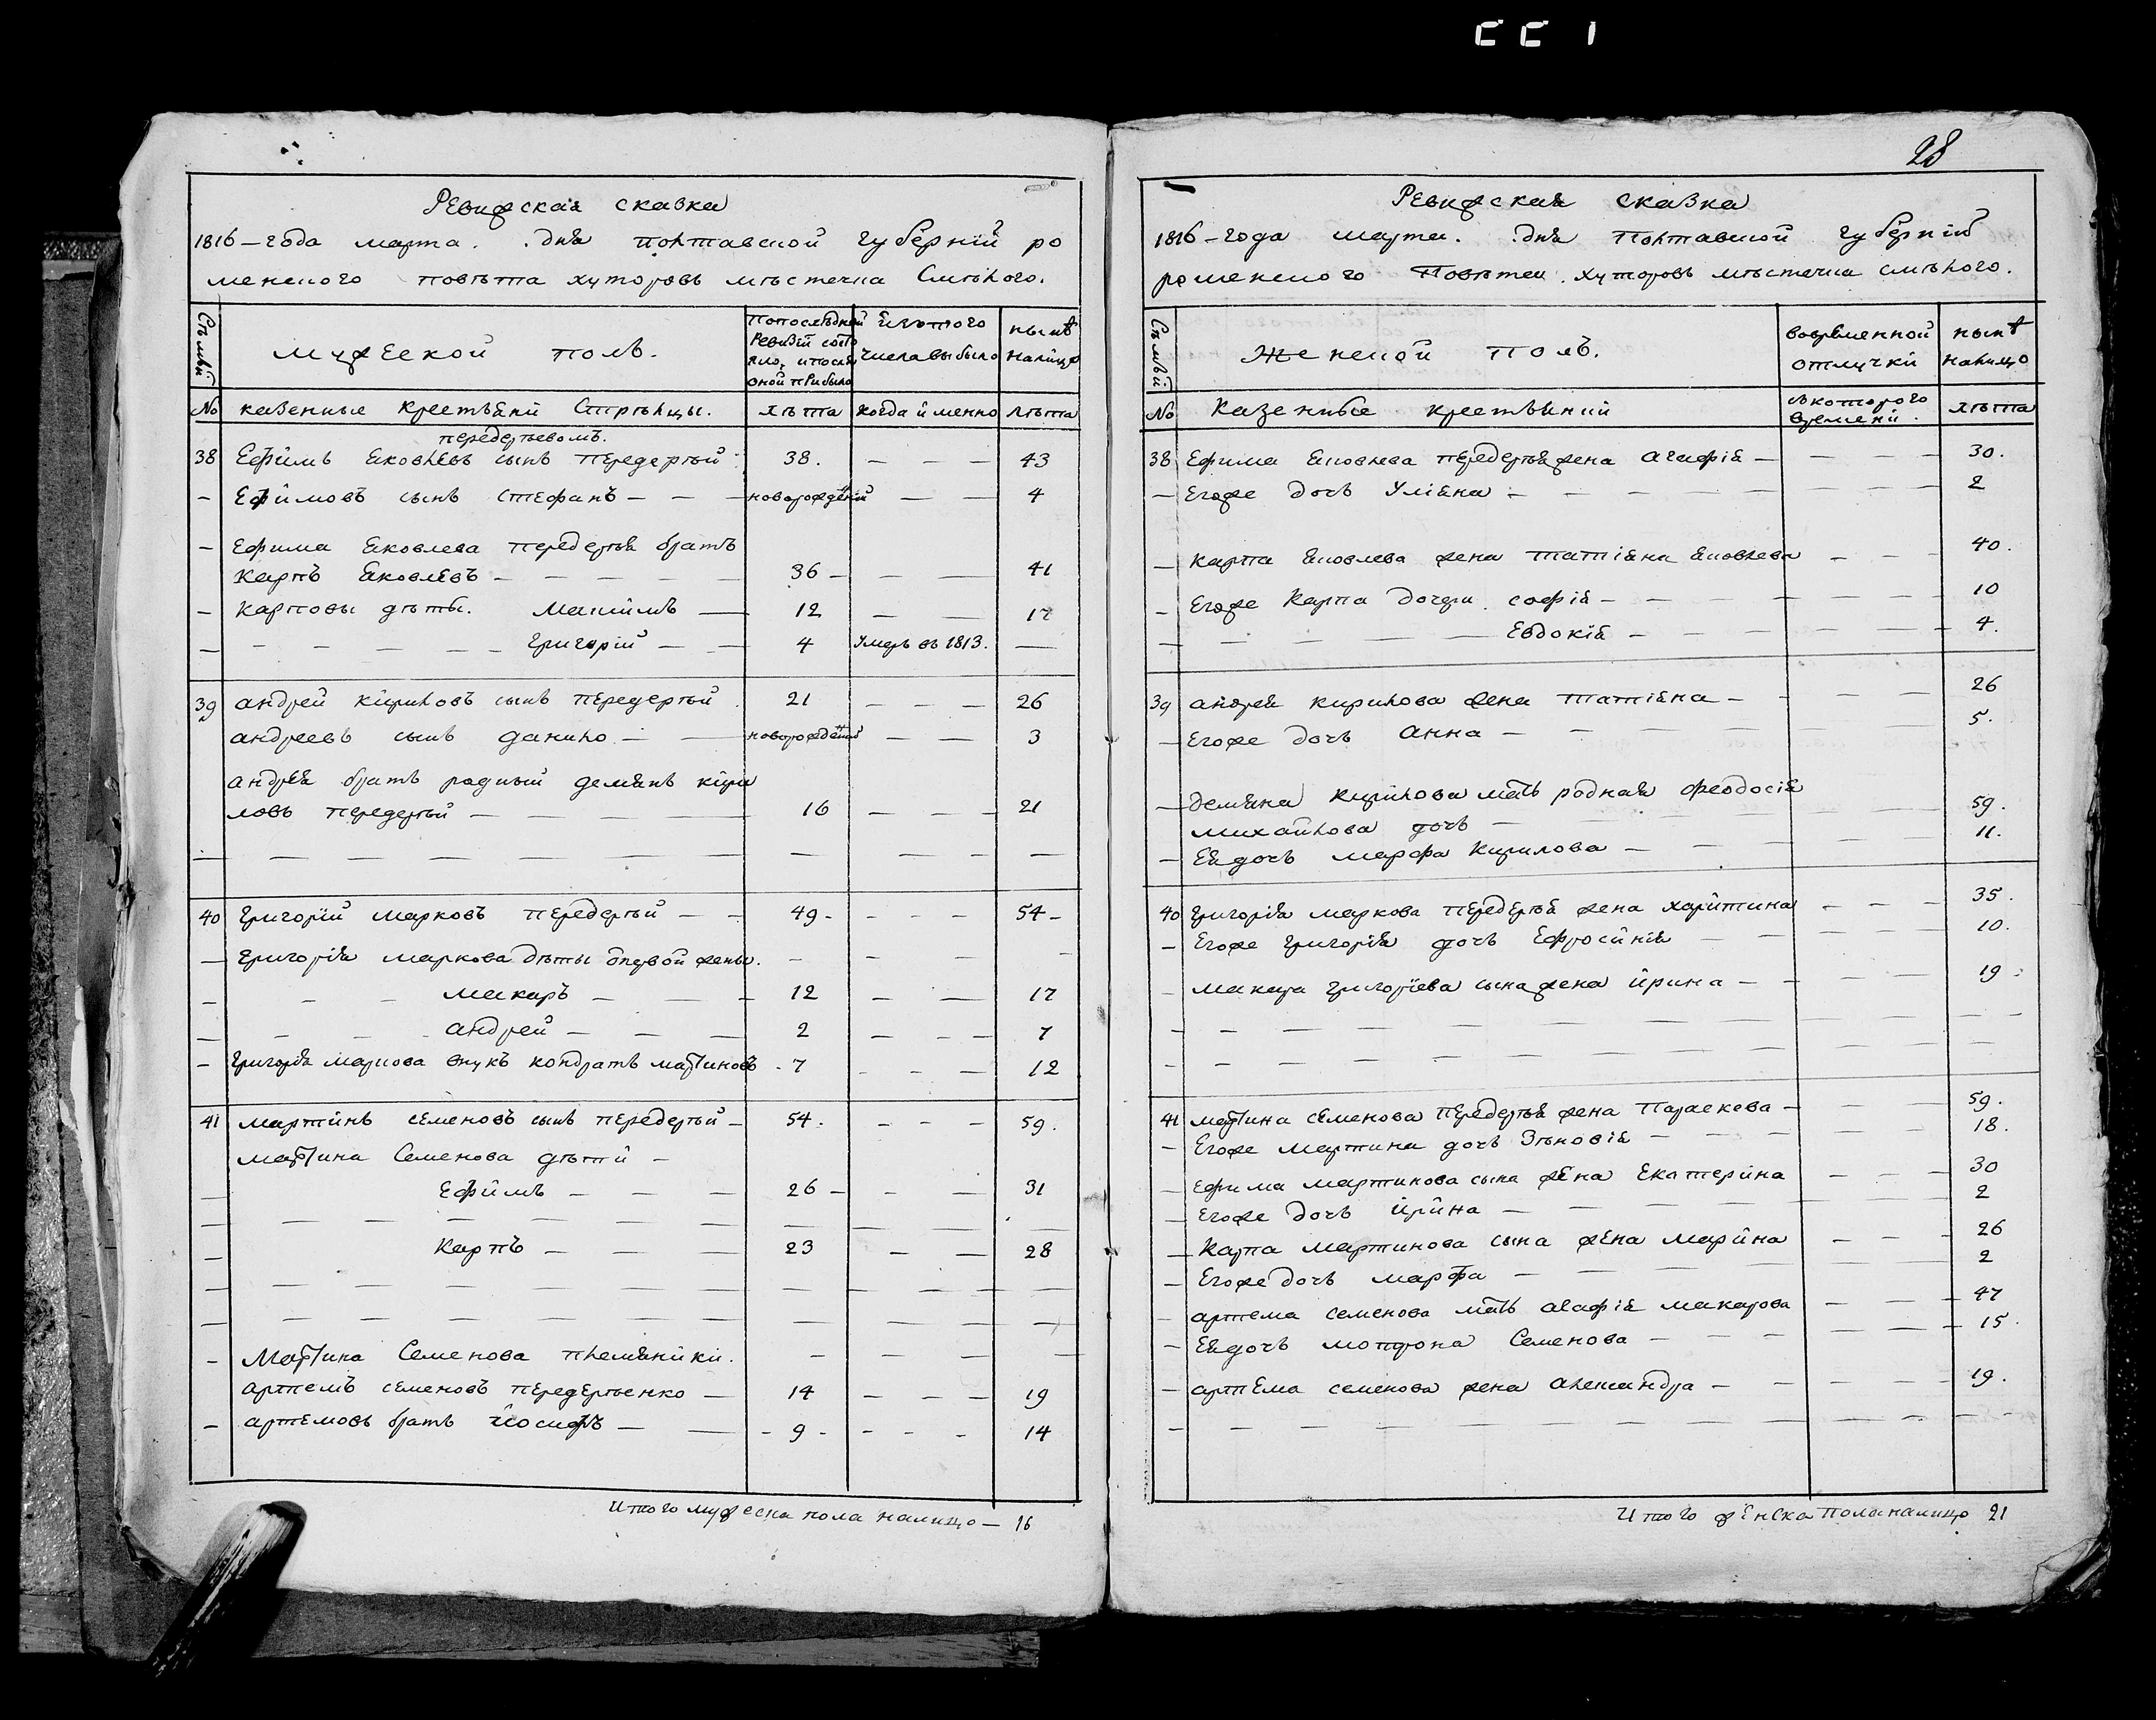 28
Ревижская сказка
1816-года марта. дня полтавской губернїй ро
менского повѣта хуторовъ мѣстечка Смѣлого.
Семьи
мужеской полъ.
Попослѣдней
Ревизїй состо
яло, ипослѣ
оной прибыло
Изътого
числа выбыло
нынѣ
налицо
No казенные крестьяни Стрѣлцы. лѣта когда именно лѣта
передерѣевомъ.
38 Ефимъ Яковлевъ сынъ передерѣй 38. — — — 43
— Ефимовъ сынъ стефанъ — — — новорожденїй — — 4
— Ефима Яковлева передерѣя братъ
Карпъ Яковлевъ — — — — — 36 — — — 41
— Карповы дѣты. Максимъ — 12 — — 17
— — — — — — Григорїй — — 4 Умеръ въ 1813. —
39 андрей кириловъ сынъ передерѣй 21 — — — 26
андреевъ сынъ данило — — новорожденый — — 3
андрѣя братъ родный демянъ кири
ловъ передерѣй — — — — 16 — — — 21
— — — — — — — — — — — —
40 Григорїй марковъ передерѣй — — 49 - - - - 54 -
— Григорїя маркова дѣты ѿпервой жены. - - - -
- - - макаръ — — — 12 — — 17
— — — — андрей — — — 2 — - — 7
— Григорїя маркова внукъ кондратъ мартиновъ - 7 - - - 12
41 мартинъ семеновъ сынъ передерѣй — 54. — — — 59.
мартина Семенова дѣти —
— Ефимъ — — — 26 — - — 31
— — — — — — — — — — —
— Карпъ — — — 23 — — 28
— — — — — — — — — — — —
— — — — — — — — — — — —
— Мартина Семенова племяники. — — — —
артемъ семеновъ передерѣенко — 14 — — — 19
— артемовъ братъ Йосифъ — — - 9 - - - - 14
Итого мужеска пола налицо — 16
Ревижская сказка
1816-года марта. дня Полтавской губернїй
роменского Повѣта. хуторовъ мѣстечка смѣлого.
Семьи
Женской полъ.
вовременной
отлучки
нынѣ
налицо
No Казеные крестьяний
съкоторого
времени.
лѣта
38 Ефима Яковлева передерѣя жена агафїя — — — — 30.
— Егоже дочъ Улїяна — — — — — — — — 2
— карпа Яковлева жена татїяна Яковлева — — — 40.
— Егоже Карпа дочери. софїя — — — — — — — 10
— — — — — Евдокїя — — — — — — 4.
39 андрея кирилова жена татїяна — — — — 26
— Егоже дочъ анна — — — — 5.
— демяна Кирилова мать родная феодосїя
михайлова дочъ — — — — — 59.
— Еядочъ марфа Кирилова — — — — — 11.
40 Григорїя маркова передерѣя жена харитина — — — 35.
— Егоже Григорїя дочъ Ефросинїя — — — — — 10.
— макара григорїева сына жена ирина — — — — — 19
— — — — — — — — — — — — — —
— — — — — — — — — — — — —
41 мартина семенова передерѣя жена Параскева — — — — 59.
— Егоже мартина дочъ Зѣновїя — — — — — — 18.
— Ефима мартинова сына жена Екатерина — — — 30
— Егоже дочъ ирина — — — — — — — 2
— Карпа мартинова сына жена марина — — — 26
— Егоже дочъ марфа — — — — — — — 2
— артема семенова мать агафїя макарова — — — 47
— Еядочъ мотрона Семенова — — — — — — 15.
— артема семенова жена александра — — — — — 19.
— — — — — — — — — — — — — —
Итого женска пола налицо 21